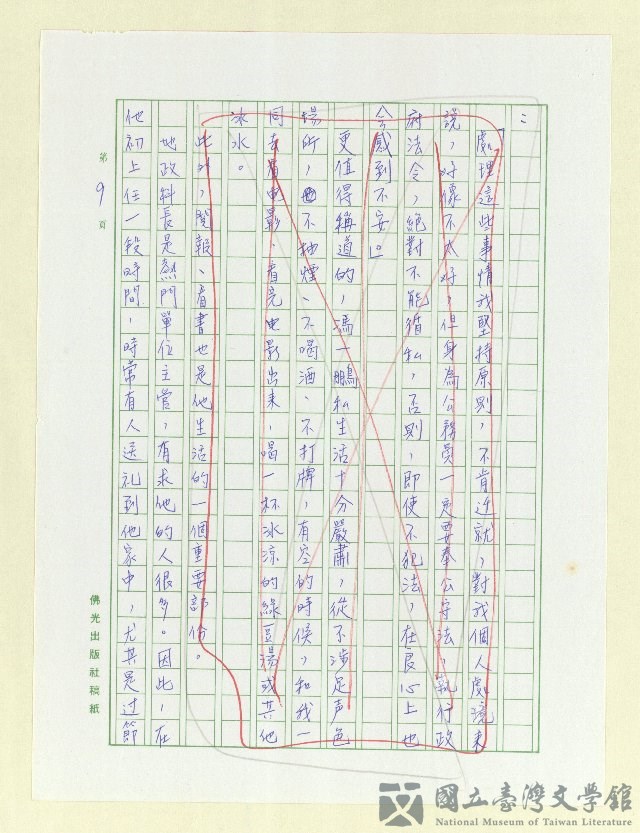 ：
「處理這些事情我堅持原則，不肯遷就，對我個人處境來
說，好像不太好，但身為公務員一定要奉公守法，執行政
府法令，絕對不能循私，否則，即使不犯法，在良心上也
会感到不安。」
更值得稱道的，馮一鵬私生活十分嚴肅，從不涉足声色
場所，也不抽煙、不喝酒、不打牌，有空的時候，和我一
同去看電影，看完电影出来，喝一杯冰凉的綠豆湯或其他
冰水。
此外，閱報、看書也是他生活的一個重要部份。
地政科長是熱門單位主管，有求他的人很多。因此，在
他初上任一段時間，時常有人送礼到他家中，尤其是过節
第9頁
佛光出版社稿紙
國立臺灣文學館
National Museum of Taiwan Literature